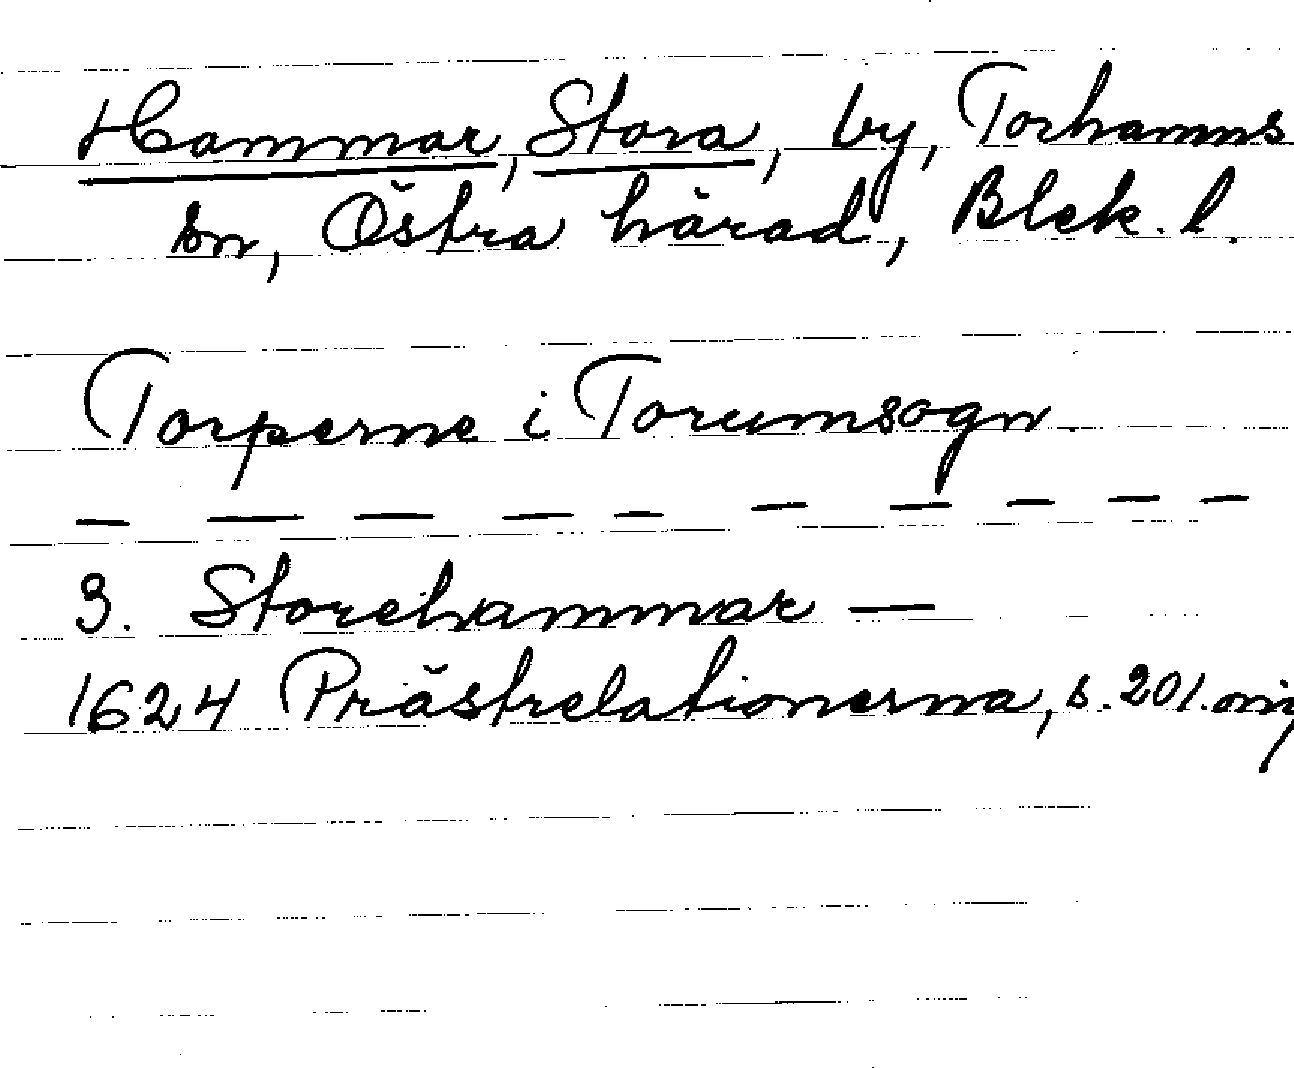 Hammar, Stora, by, Torhamns
sn, Östra härad, Blek. l.
Torperne i Torumsogn
— — — — — — — — — —
3. Storehammar —
1624 Prästrelationerna, s. 201. orig